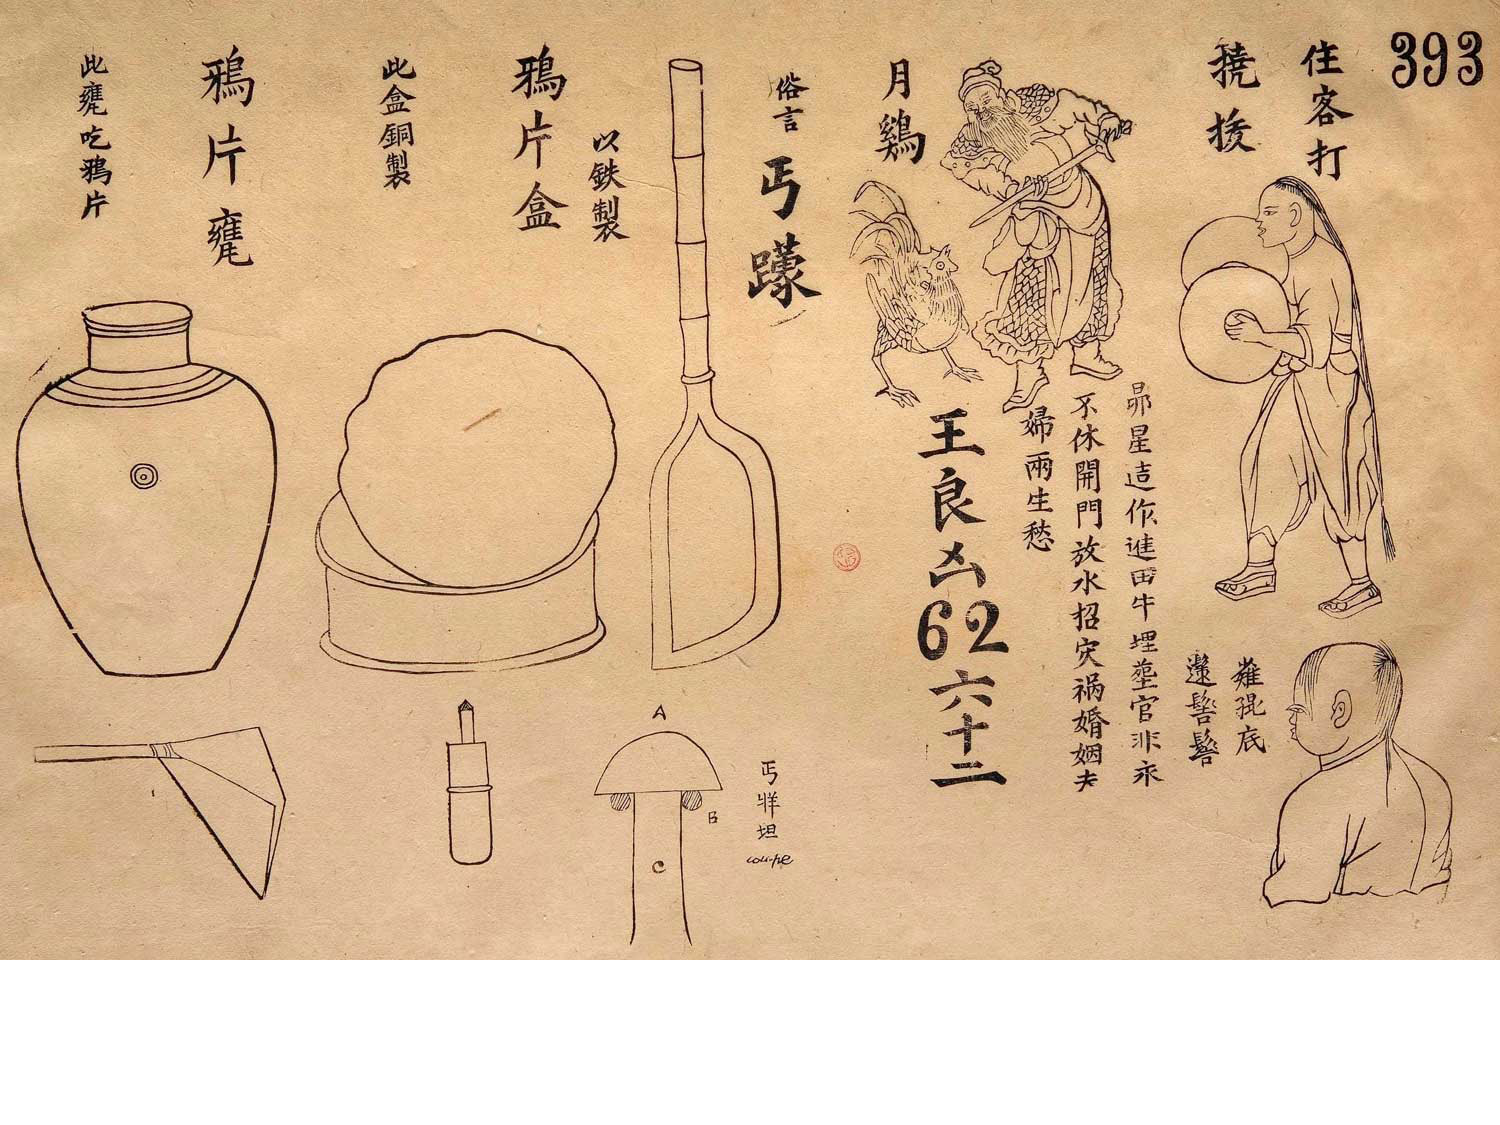 393
住客打
撓捘
昴星造作進田牛埋塟官非永
不休開門放水招灾祸婚姻夫
婦兩生愁
月鷄
王良凶62六十二
俗言
丐
以鉄製
鴉片盒
此盒銅製
鴉片甕
此甕吃鴉片
底
A
B
C
丐
坦
coupe